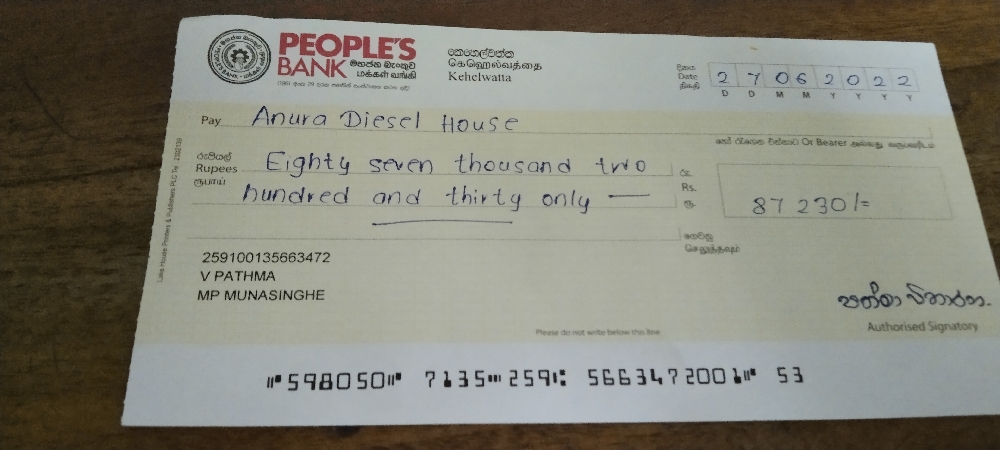 PEOPLE'S
BANK මහජන බැංකුව
மக்கள் வங்கி
කෙහෙල්වත්ත
கெஹெல்வத்தை
Kehelwatta
Date 2 7 0 6 2 0 2 2
திகதி D D M M Y Y Y Y
Pay Anura Diesel House
Or Bearer
රුපියල්
Rupees Eighty seven thousand two
ரூபாய் hundred and thirty only
රු.
Rs. 87 230/=
ரூ.
ගෙවනු
செலுத்தவும்
259100135663472
V PATHMA
MP MUNASINGHE
Authorised Signatory
Please do not write below this line
Lake House Printers & Publishers PLC
⑈598050⑈ 7135⑉259⑆ 566347 2001⑈ 53